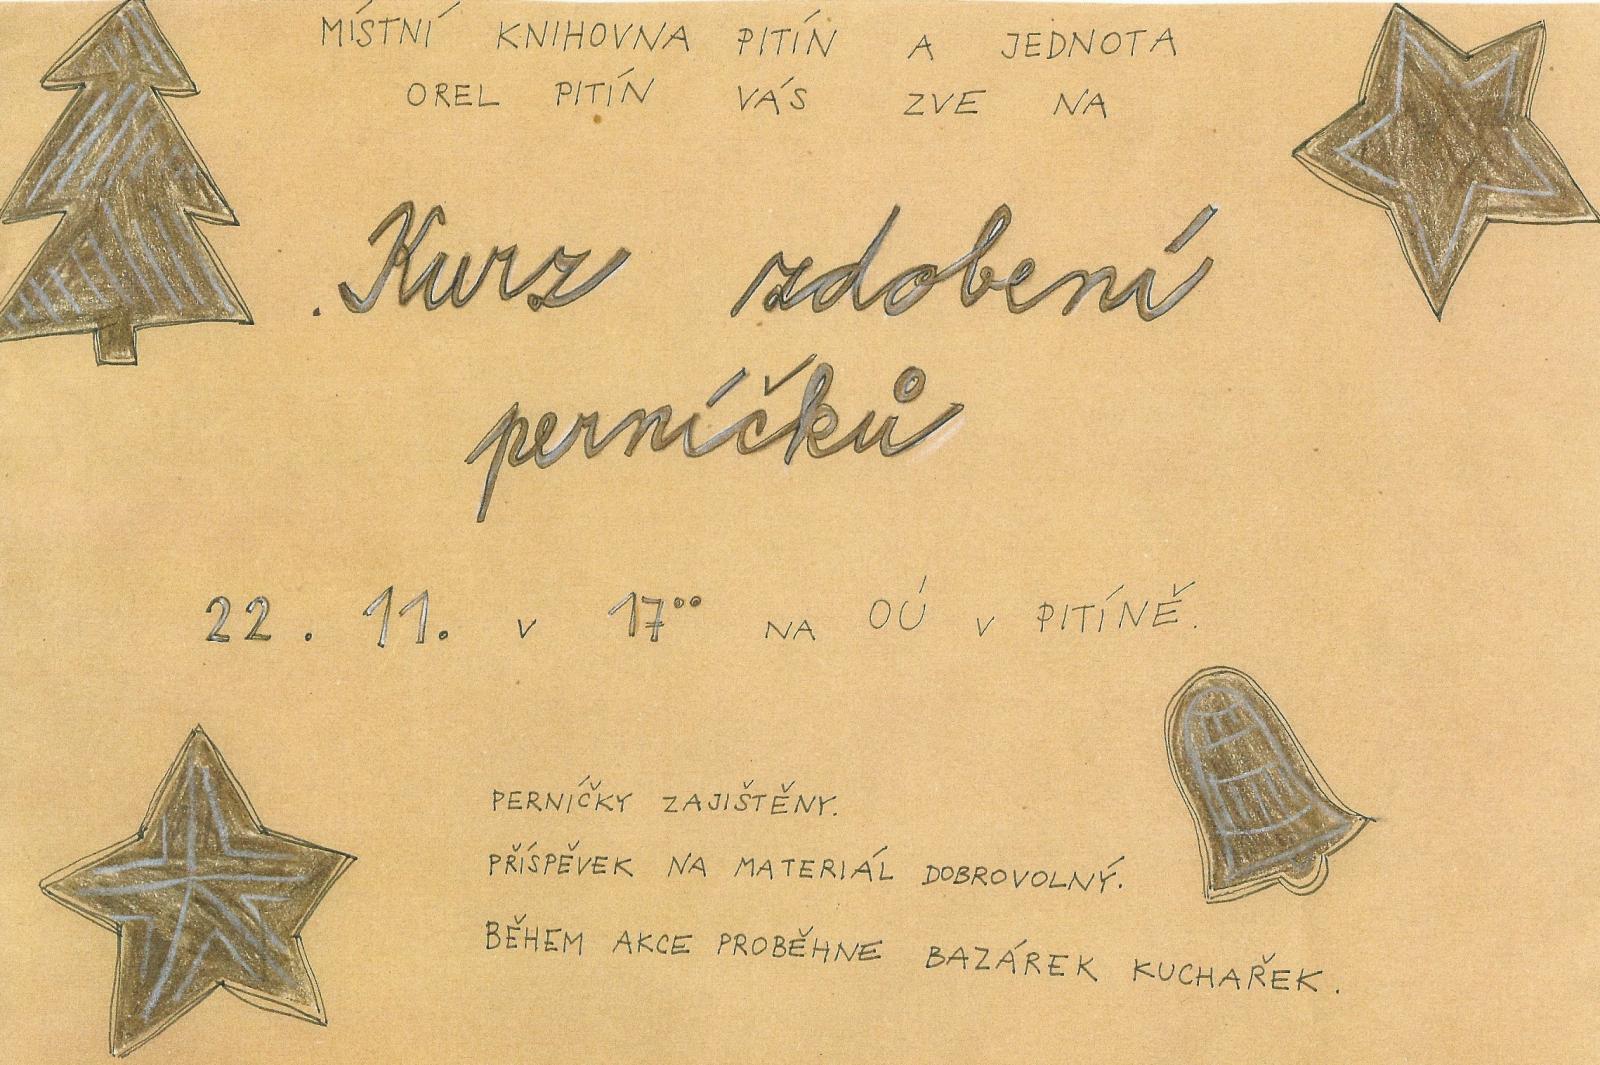 MÍSTNÍ KNIHOVNA PITÍN A JEDNOTA
OREL PITÍN VÁS ZVE NA
Kurz zdobení
perníčků
22. 11. v 17⁰⁰ NA OÚ V PITÍNĚ.
PERNÍČKY ZAJIŠTĚNY.
PŘÍSPĚVEK NA MATERIÁL DOBROVOLNÝ.
BĚHEM AKCE PROBĚHNE BAZÁREK KUCHAŘEK.